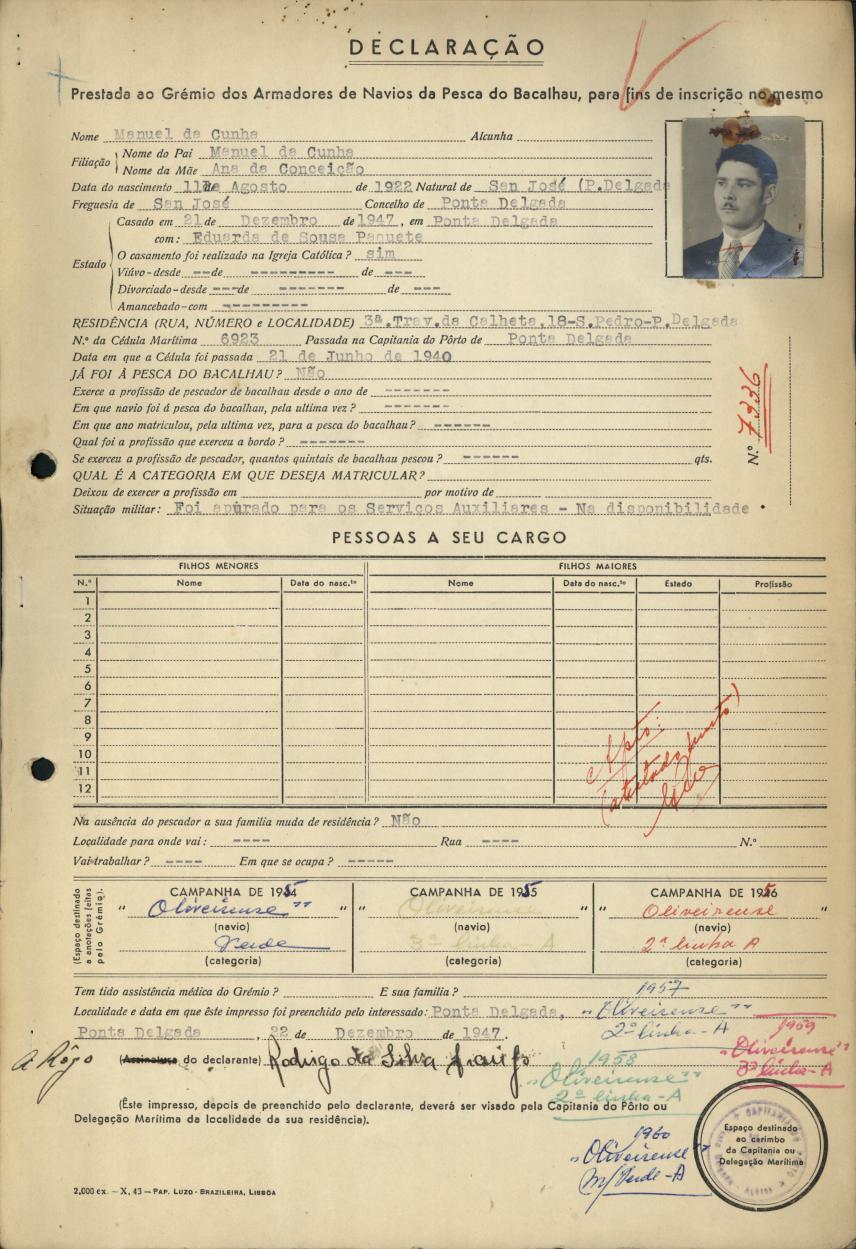 DECLARAÇÃO
Prestada ao Grémio dos Armadores de Navios da Pesca do Bacalhau, para fins de inscrição no mesmo
Nome Manuel da Cunha Alcunha
Filiação
Nome do Pai Manuel da Cunha
Nome da Mãe Ana da Conceição
Data do nascimento 11 de Agosto de 1922 Natural de San José (P.Delgada
Freguesia de San José Concelho de Ponta Delgada
Estado
Casado em 21 de Dezembro de 1947, em Ponta Delgada
com: Eduarda de Sousa Paquete
O casamento foi realizado na Igreja Católica? sim
Viúvo-desde -- de --------- de ---
Divorciado-desde --- de ------- de ---
Amancebado-com ---------
RESIDÊNCIA (RUA, NÚMERO e LOCALIDADE) 3ª.Trav.da Calheta,18-S.Pedro-P.Delgada
N.º da Cédula Marítima 6923 Passada na Capitania do Pôrto de Ponta Delgada
Data em que a Cédula foi passada 21 de Junho de 1940
JÁ FOI Á PESCA DO BACALHAU? Não
Exerce a profissão de pescador de bacalhau desde o ano de -------
Em que navio foi á pesca do bacalhau, pela ultima vez? -------
Em que ano matriculou, pela ultima vez, para a pesca do bacalhau? ------
Qual foi a profissão que exerceu a bordo? -------
Se exerceu a profissão de pescador, quantos quintais de bacalhau pescou? ------ qts.
QUAL É A CATEGORIA EM QUE DESEJA MATRICULAR?
Deixou de exercer a profissão em por motivo de
Situação militar: Foi apurado para os Serviços Auxiliares - Na disponibilidade
N.º 7336
PESSOAS A SEU CARGO
FILHOS MENORES FILHOS MAIORES
N.º Nome Data do nasc.to Nome Data do nasc.to Estado Profissão
1
2
3
4
5
6
7
8
9
10
11
12
Apto:
(atestado junto)
Na ausência do pescador a sua familia muda de residência? Não
Localidade para onde vai: ---- Rua ---- N.º
Vai trabalhar? ---- Em que se ocupa? -----
(Espaço destinado a anotações feitas pelo Grémio).
CAMPANHA DE 1954 CAMPANHA DE 1955 CAMPANHA DE 1956
"Oliveirense" "Oliveirense" "Oliveirense"
(navio) (navio) (navio)
Verde 3ª linha-A 2ª linha A
(categoria) (categoria) (categoria)
Tem tido assistência médica do Grémio? E sua familia?
1957
Localidade e data em que êste impresso foi preenchido pelo interessado: Ponta Delgada,
"Oliveirense"
2ª linha-A
Ponta Delgada, 22 de Dezembro de 1947.
1959
"Oliveirense"
3ª linha-A
A Rôgo (Assinatura do declarante) Rodrigo da Silva Araújo
1958
"Oliveirense"
2ª linha-A
(Êste impresso, depois de preenchido pelo declarante, deverá ser visado pela Capitania do Pôrto ou
Delegação Marítima da localidade da sua residência).
Espaço destinado
ao carimbo
da Capitania ou
Delegação Marítima
1960
"Oliveirense"
m/Verde-A
2,000 ex. - X, 43 - PAP. LUZO-BRAZILEIRA, LISBÔA